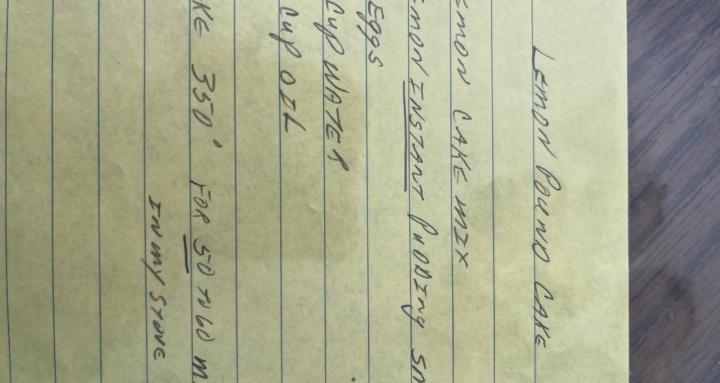 LEMON POUND CAKE
EMON CAKE MIX
EMON INSTANT PUDDING SM
EGGS
CUP WATER
CUP OIL
KE 350° FOR 50 TO 60 M
IN MY STOVE